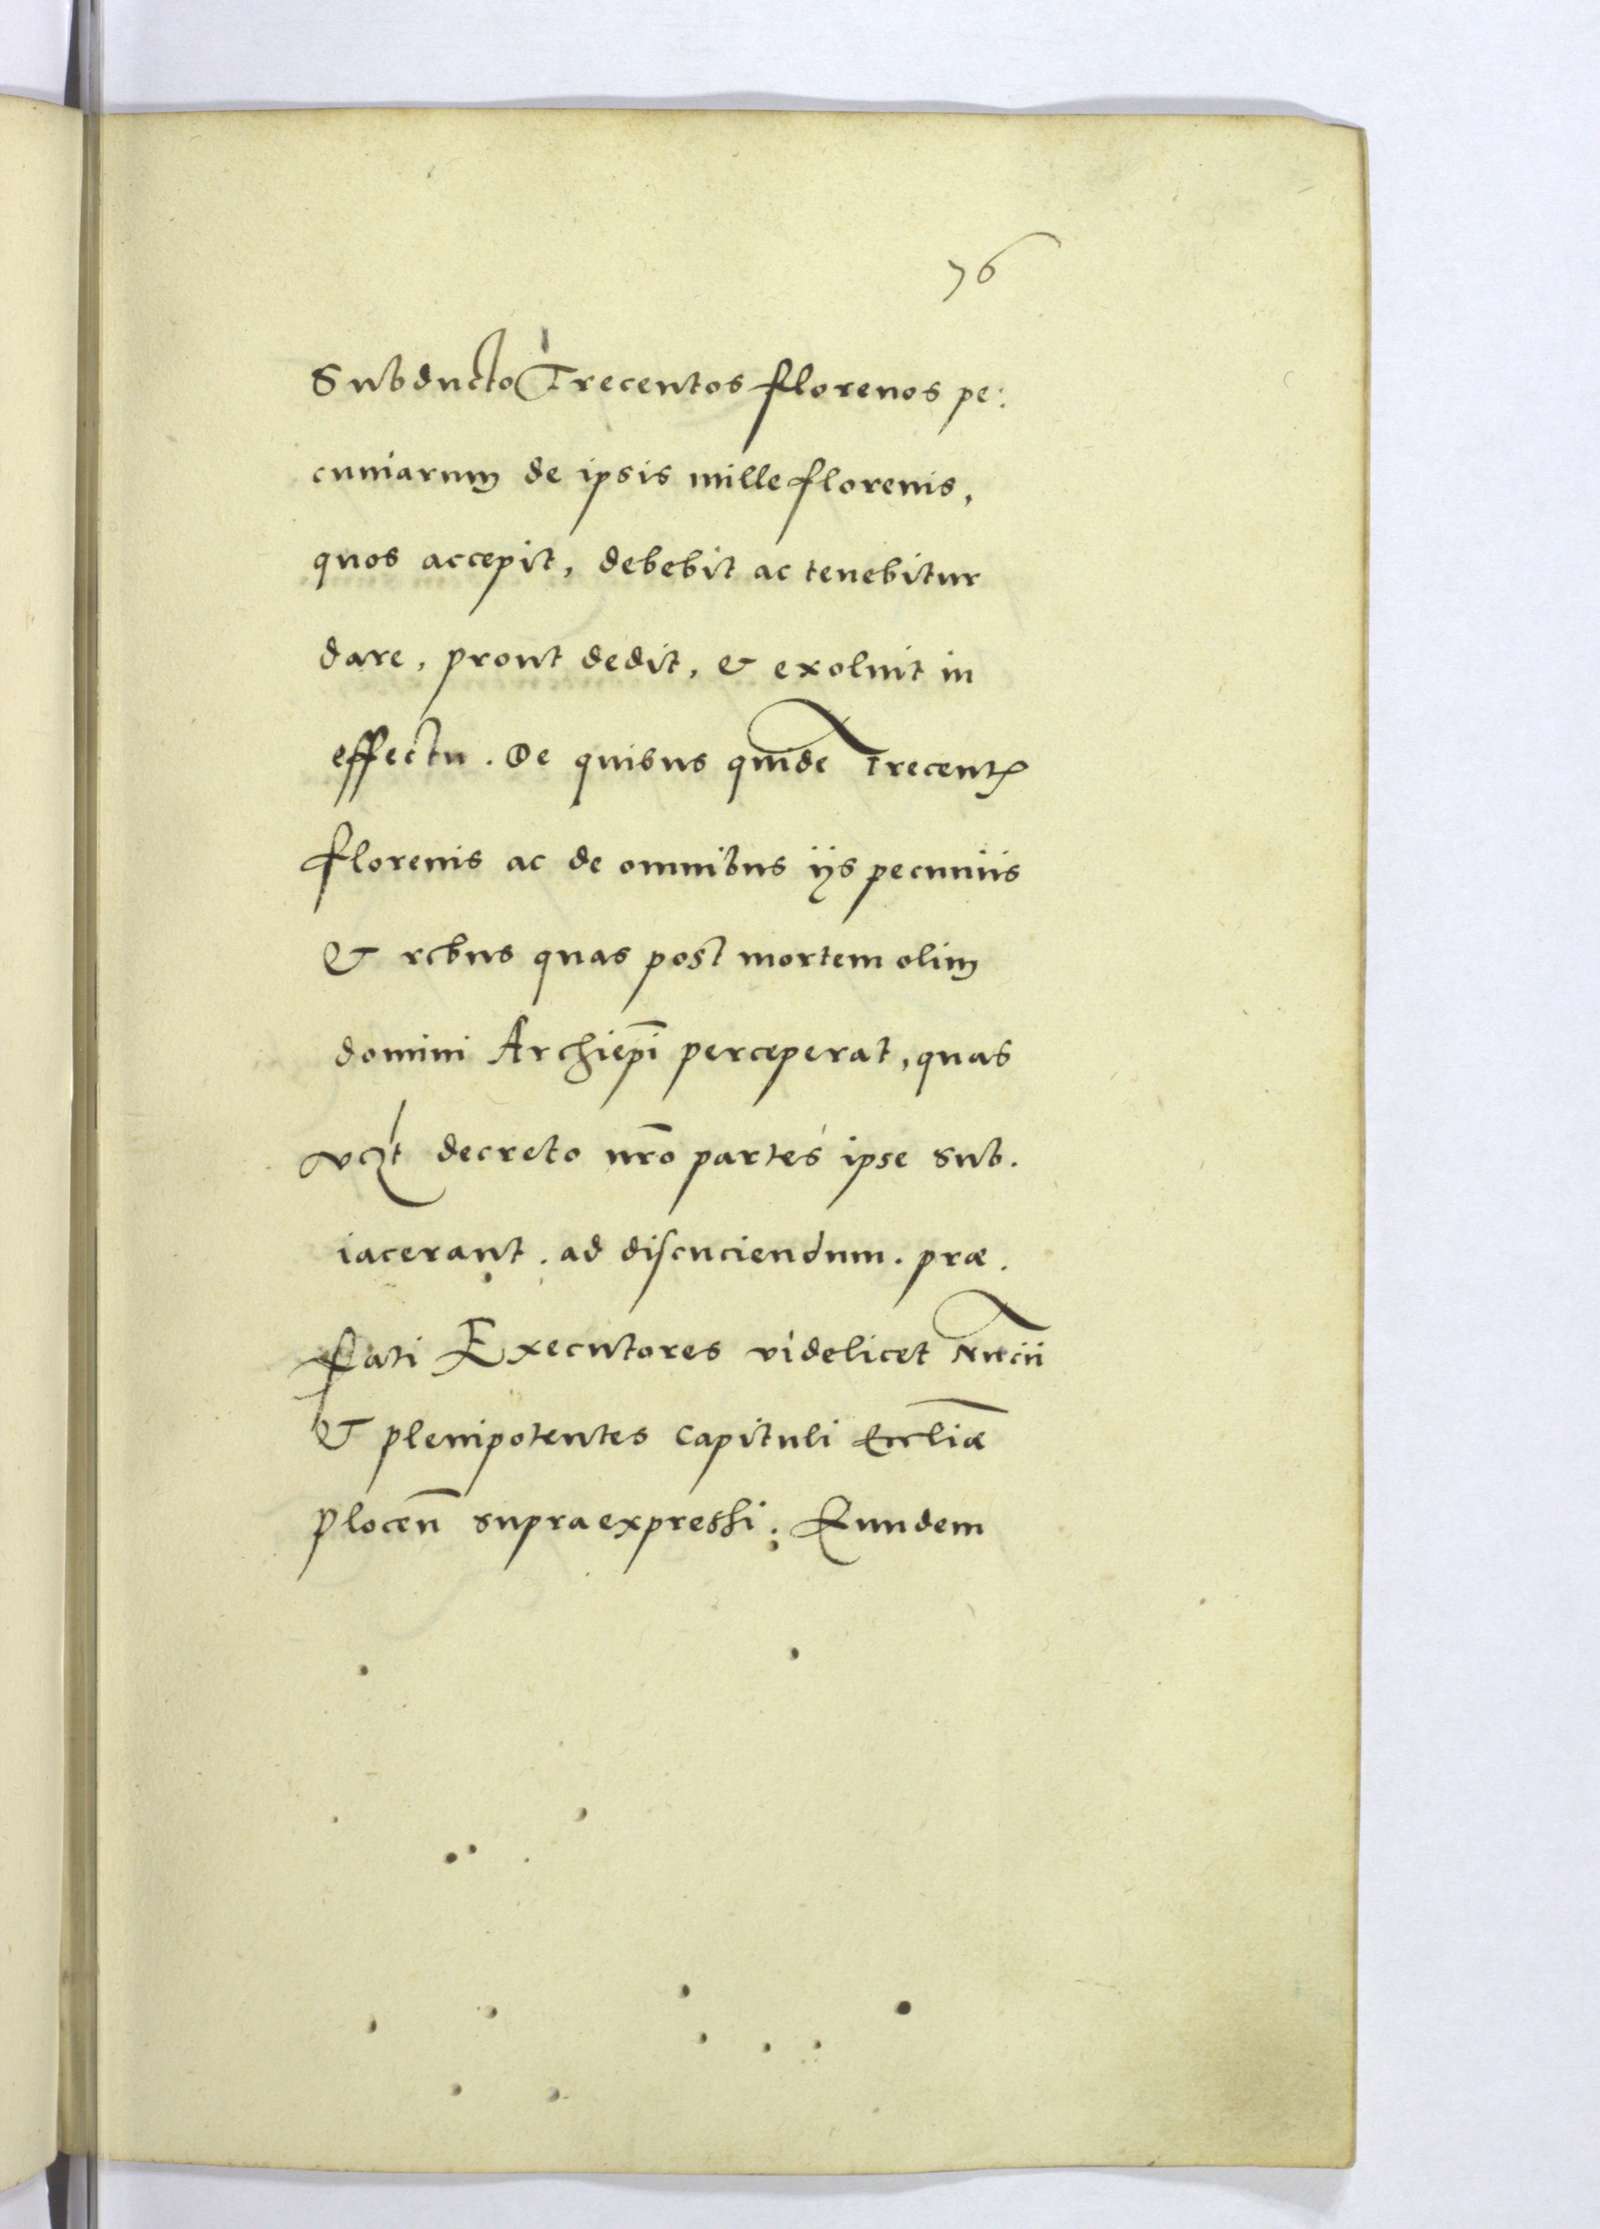 76
Subducto Trecentos florenos pe:
cuniarum de ipsis mille florenis,
quos accepit, debebit ac tenebitur
dare, prout dedit, & exoluit in
effectu. De quibus quidē Trecentꝭ
florenis ac de omnibus iis pecuniis
& rebus quas post mortem olim
domini Archiepī perceperat, quas
decreto nr̄o partes ipse sub.
iacerant. ad discuciendum. præ.
fati Executores videlicet Nūcii
& plenipotentes Capituli Eccliæ
Plocen̄ supraexpressi. Eundem